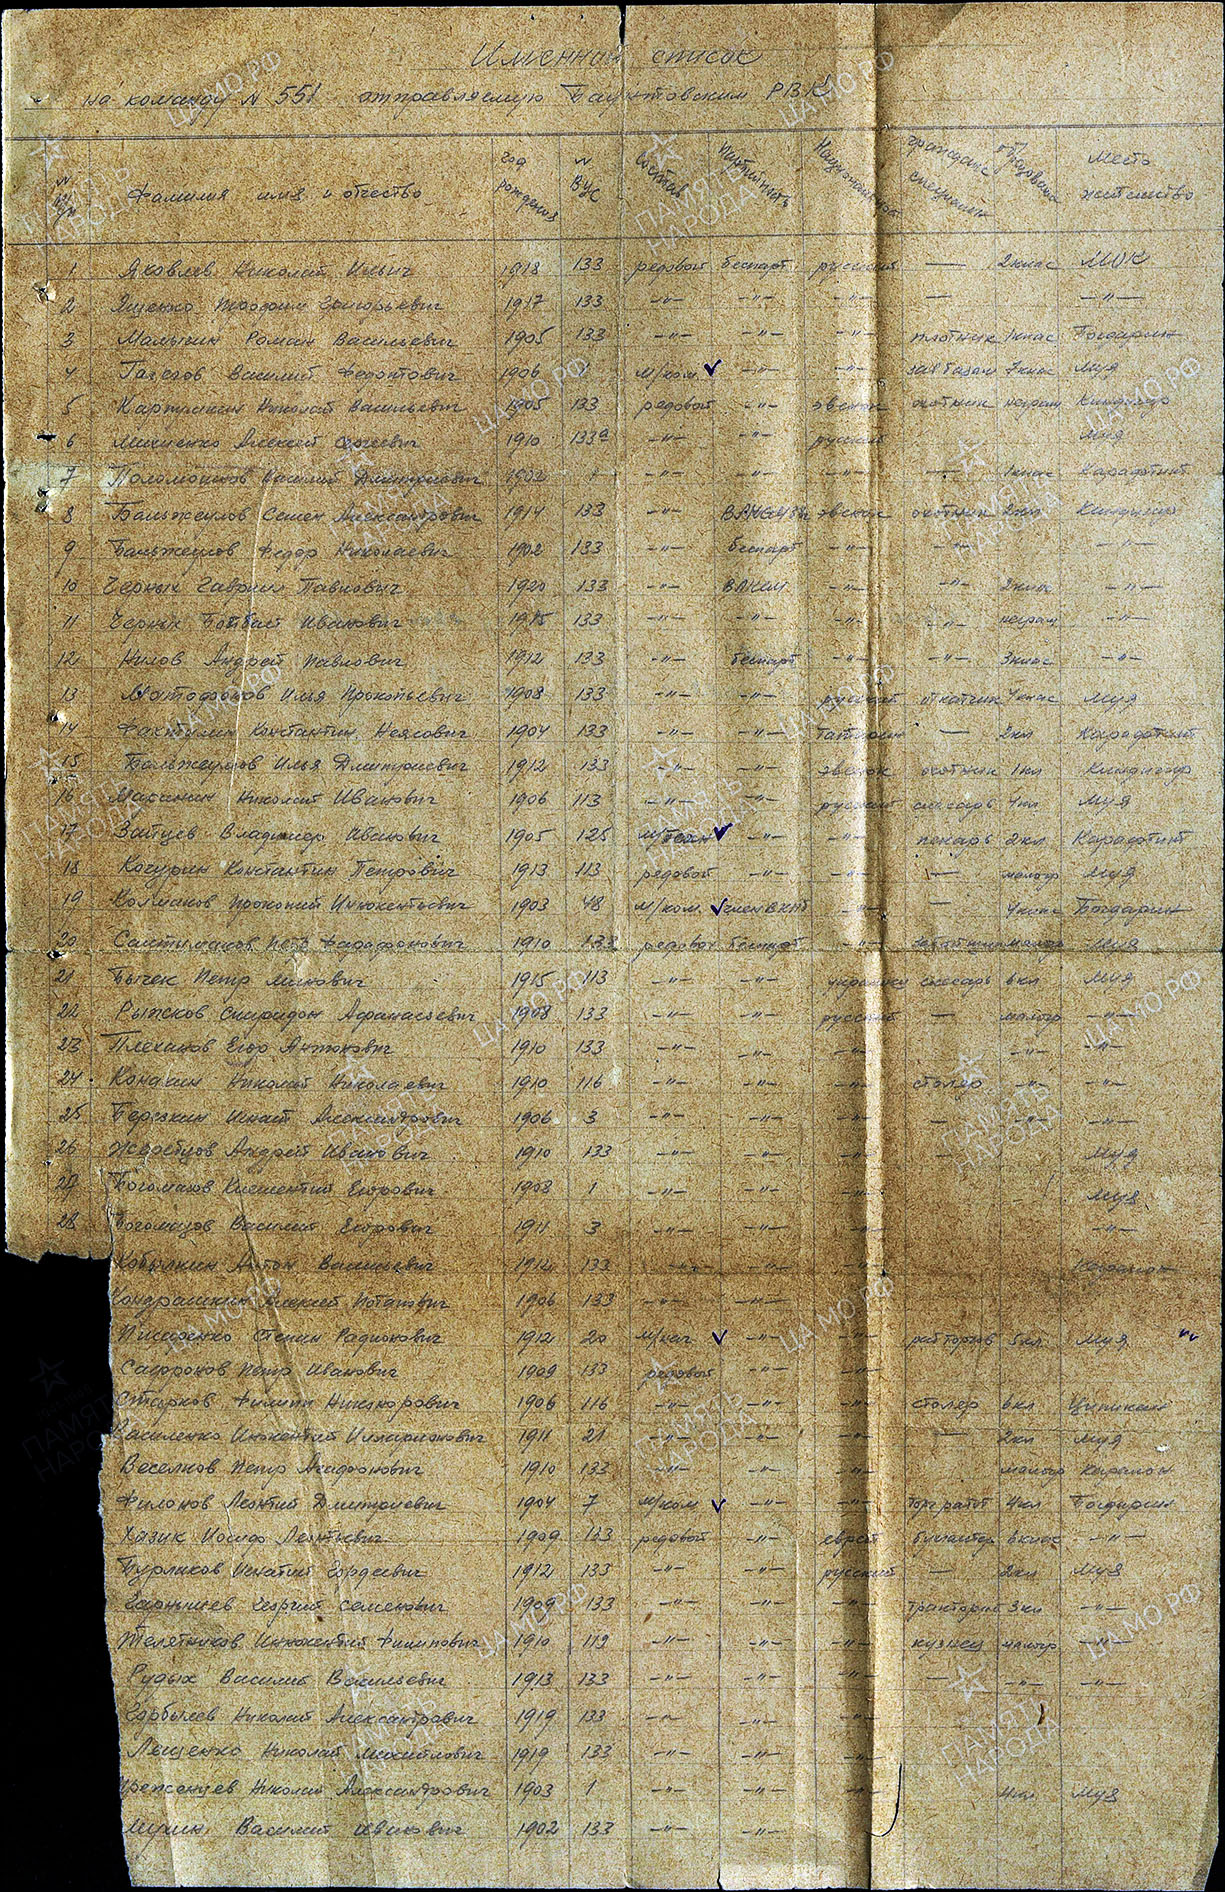 Именной список
на команду № 551 отправляемую Баунтовским РВК
№ п/п Фамилия имя и отчество год рождения № ВУС Состав Партийность Национальность граждан. специальн. образование Место жительство
1 Яковлев Николай Ильич 1918 133 рядовой беспарт. русский — 2 клас
2 Ященко Трофим Григорьевич 1917 133 —"— —"— — —"—
3 Малыгин Роман Васильевич 1905 133 —"— —"— плотник 1 клас Богдарин
4 Василий Федотович 1906 1 м/ком. —"— —"— зав базой 7 клас Муя
5 Николай Васильевич 1905 133 рядовой —"— эвенк охотник неграм
6 Алексей Сергеевич 1910 133а —"— —"— русский Муя
7 Василий Дмитриевич 1902 1 —"— —"— —"— — 1 клас
8 Семен Александрович 1914 133 —"— эвенк охотник 2 кл
9 Федор Николаевич 1902 133 —"— беспарт —"— —"— —"—
10 Черных Гаврил Павлович 1920 133 —"— ВЛКСМ —"— —"— 2 клас —"—
11 Черных Иванович 1915 133 —"— —"— —"— —"— неграм —"—
12 Нилов Андрей Павлович 1912 133 —"— беспарт —"— —"— 3 клас —"—
13 Илья Прокопьевич 1908 133 —"— —"— русский откатчик 4 клас Муя
14 Константин 1904 133 —"— —"— — 2 кл
15 Илья Дмитриевич 1912 133 —"— —"— эвенок охотник 1 кл
16 Маранин Николай Иванович 1906 113 —"— —"— русский слесарь 4 кл Муя
17 Зайцев Владимир Иванович 1905 125 м/техн —"— —"— пекарь 2 кл
18 Кочурин Константин Петрович 1913 113 рядовой —"— —"— — малогр Муя
19 Колмаков Прокопий Инокентьевич 1903 48 м/ком. член ВКП —"— — 4 клас Богдарин
20 Петр 1910 133 рядовой беспарт —"— Муя
21 Бычек Петр 1915 113 —"— —"— украинец слесарь 6 кл Муя
22 Рыжков Спиридон Афанасьевич 1908 133 —"— —"— русский — малогр —"—
23 Плеханов Егор Антонович 1910 133 —"— —"— —"— —"—
24 Конакин Николай Николаевич 1910 116 —"— —"— —"— столяр —"— —"—
25 Александрович 1906 3 —"— —"— —"— — —"— —"—
26 Жеребцов Андрей Иванович 1910 133 —"— —"— —"— — Муя
27 Богомазов Климентий Егорович 1908 1 —"— —"— —"— Муя
28 Василий Егорович 1911 3 —"— —"— —"— —"—
Кобылкин Антон Васильевич 1912 133 —"— —"— —"—
Кондрашкин Алексей Потапович 1906 133 —"— —"—
Писаренко Степан Радионович 1912 20 м/нач —"— —"— раб торгов 5 кл. Муя
Сафронов Петр Иванович 1909 133 рядовой —"—
Старков Филипп Никанорович 1906 116 —"— —"— —"— столяр 6 кл Ципикан
Василенко Инокентий Илларионович 1911 21 —"— —"— —"— — 2 кл Муя
Веселков Петр Агафонович 1910 133 —"— —"— —"— малогр
Филонов Леонтий Дмитриевич 1904 7 м/ком —"— —"— торг работ 4 кл Богдарин
Хазик Иосиф Леонтьевич 1909 133 рядовой —"— еврей бухгалтер 6 клас —"—
Бурлаков Игнатий Гордеевич 1912 133 —"— —"— русский — 2 кл Муя
Георгий Семенович 1909 133 —"— —"— —"— тракторист 3 кл —"—
Телятников Инокентий Филипович 1910 119 —"— —"— —"— кузнец малогр —"—
Рудых Василий Васильевич 1913 133 —"— —"— —"— — —"— —"—
Горбылев Николай Александрович 1919 133 —"— —"— —"—
Лященко Николай Михайлович 1919 133 —"— —"— —"—
Николай Александрович 1903 1 —"— —"— —"— 4 кл Муя
Василий Иванович 1902 133 —"— —"—
ПАМЯТЬ НАРОДА
ЦА МО.РФ